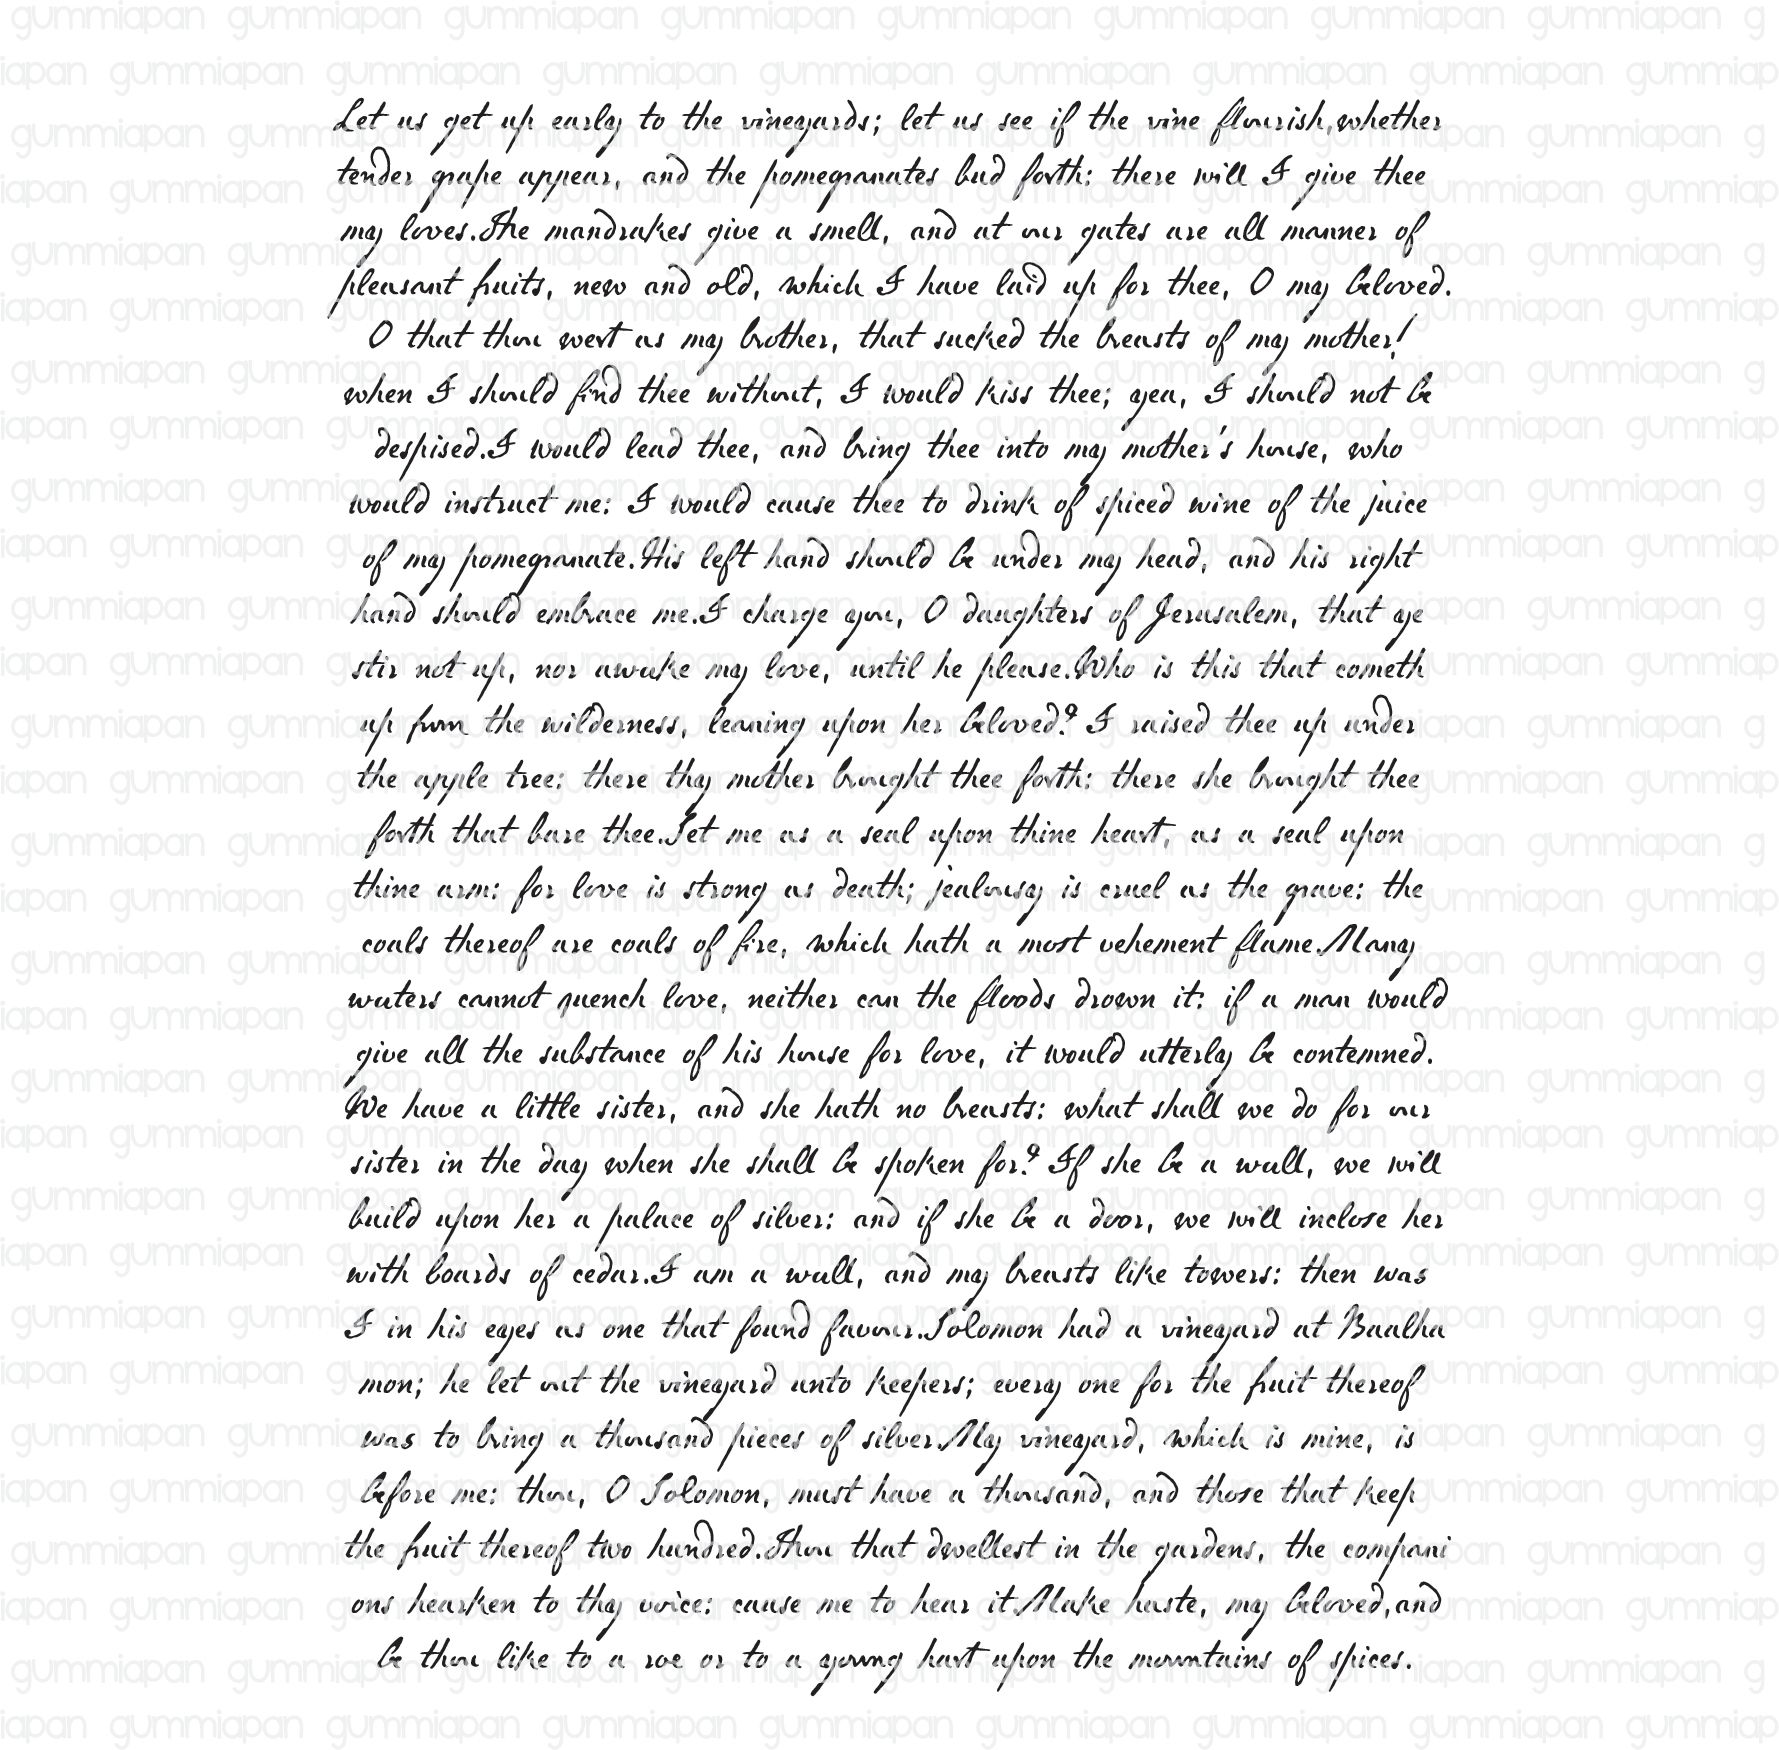 Let us get up early to the vineyards; let us see if the vine flourish,whether
tender grape appear, and the pomegranates bud forth: there will I give thee
my loves.The mandrakes give a smell, and at our gates are all manner of
pleasant fruits, new and old, which I have laid up for thee, O my beloved.
O that thou wert as my brother, that sucked the breasts of my mother!
when I should find thee without, I would kiss thee; yea, I should not be
despised.I would lead thee, and bring thee into my mother's house, who
would instruct me: I would cause thee to drink of spiced wine of the juice
of my pomegranate.His left hand should be under my head, and his right
hand should embrace me.I charge you, O daughters of Jerusalem, that ye
stir not up, nor awake my love, until he please.Who is this that cometh
up from the wilderness, leaning upon her beloved? I raised thee up under
the apple tree: there thy mother brought thee forth: there she brought thee
forth that bare thee.Set me as a seal upon thine heart, as a seal upon
thine arm: for love is strong as death; jealousy is cruel as the grave: the
coals thereof are coals of fire, which hath a most vehement flame.Many
waters cannot quench love, neither can the floods drown it: if a man would
give all the substance of his house for love, it would utterly be contemned.
We have a little sister, and she hath no breasts: what shall we do for our
sister in the day when she shall be spoken for? If she be a wall, we will
build upon her a palace of silver: and if she be a door, we will inclose her
with boards of cedar.I am a wall, and my breasts like towers: then was
I in his eyes as one that found favour.Solomon had a vineyard at Baalha
mon; he let out the vineyard unto keepers; every one for the fruit thereof
was to bring a thousand pieces of silver.My vineyard, which is mine, is
before me: thou, O Solomon, must have a thousand, and those that keep
the fruit thereof two hundred.Thou that dwellest in the gardens, the compani
ons hearken to thy voice: cause me to hear it.Make haste, my beloved,and
be thou like to a roe or to a young hart upon the mountains of spices.